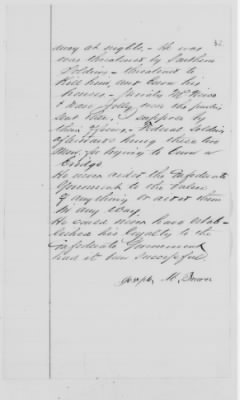 away at nights - He was
was threatened by Southern
Soldiers - threatened to
Kill him, and burn his
houses -
& Isaac Jolly were the
sent there, I suppose by
their officers - Federal Soldiers
afterwards hung these two
Men, for trying to burn a
bridge
He never aided the Confederate
Government to the Value
of anything or aided them
in any way.
He could never have estab-
lished his loyalty to the
Confederate Government
had it been successful.
Joseph M.